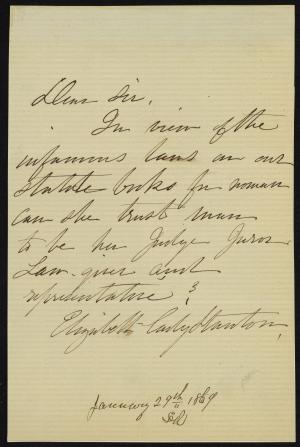 Dear Sir,
In view of the
infamous laws on our
statute books for woman
can she trust man
to be her Judge Juror
Law-giver and
representative?
Elizabeth Cady Stanton,
January 29th 1869